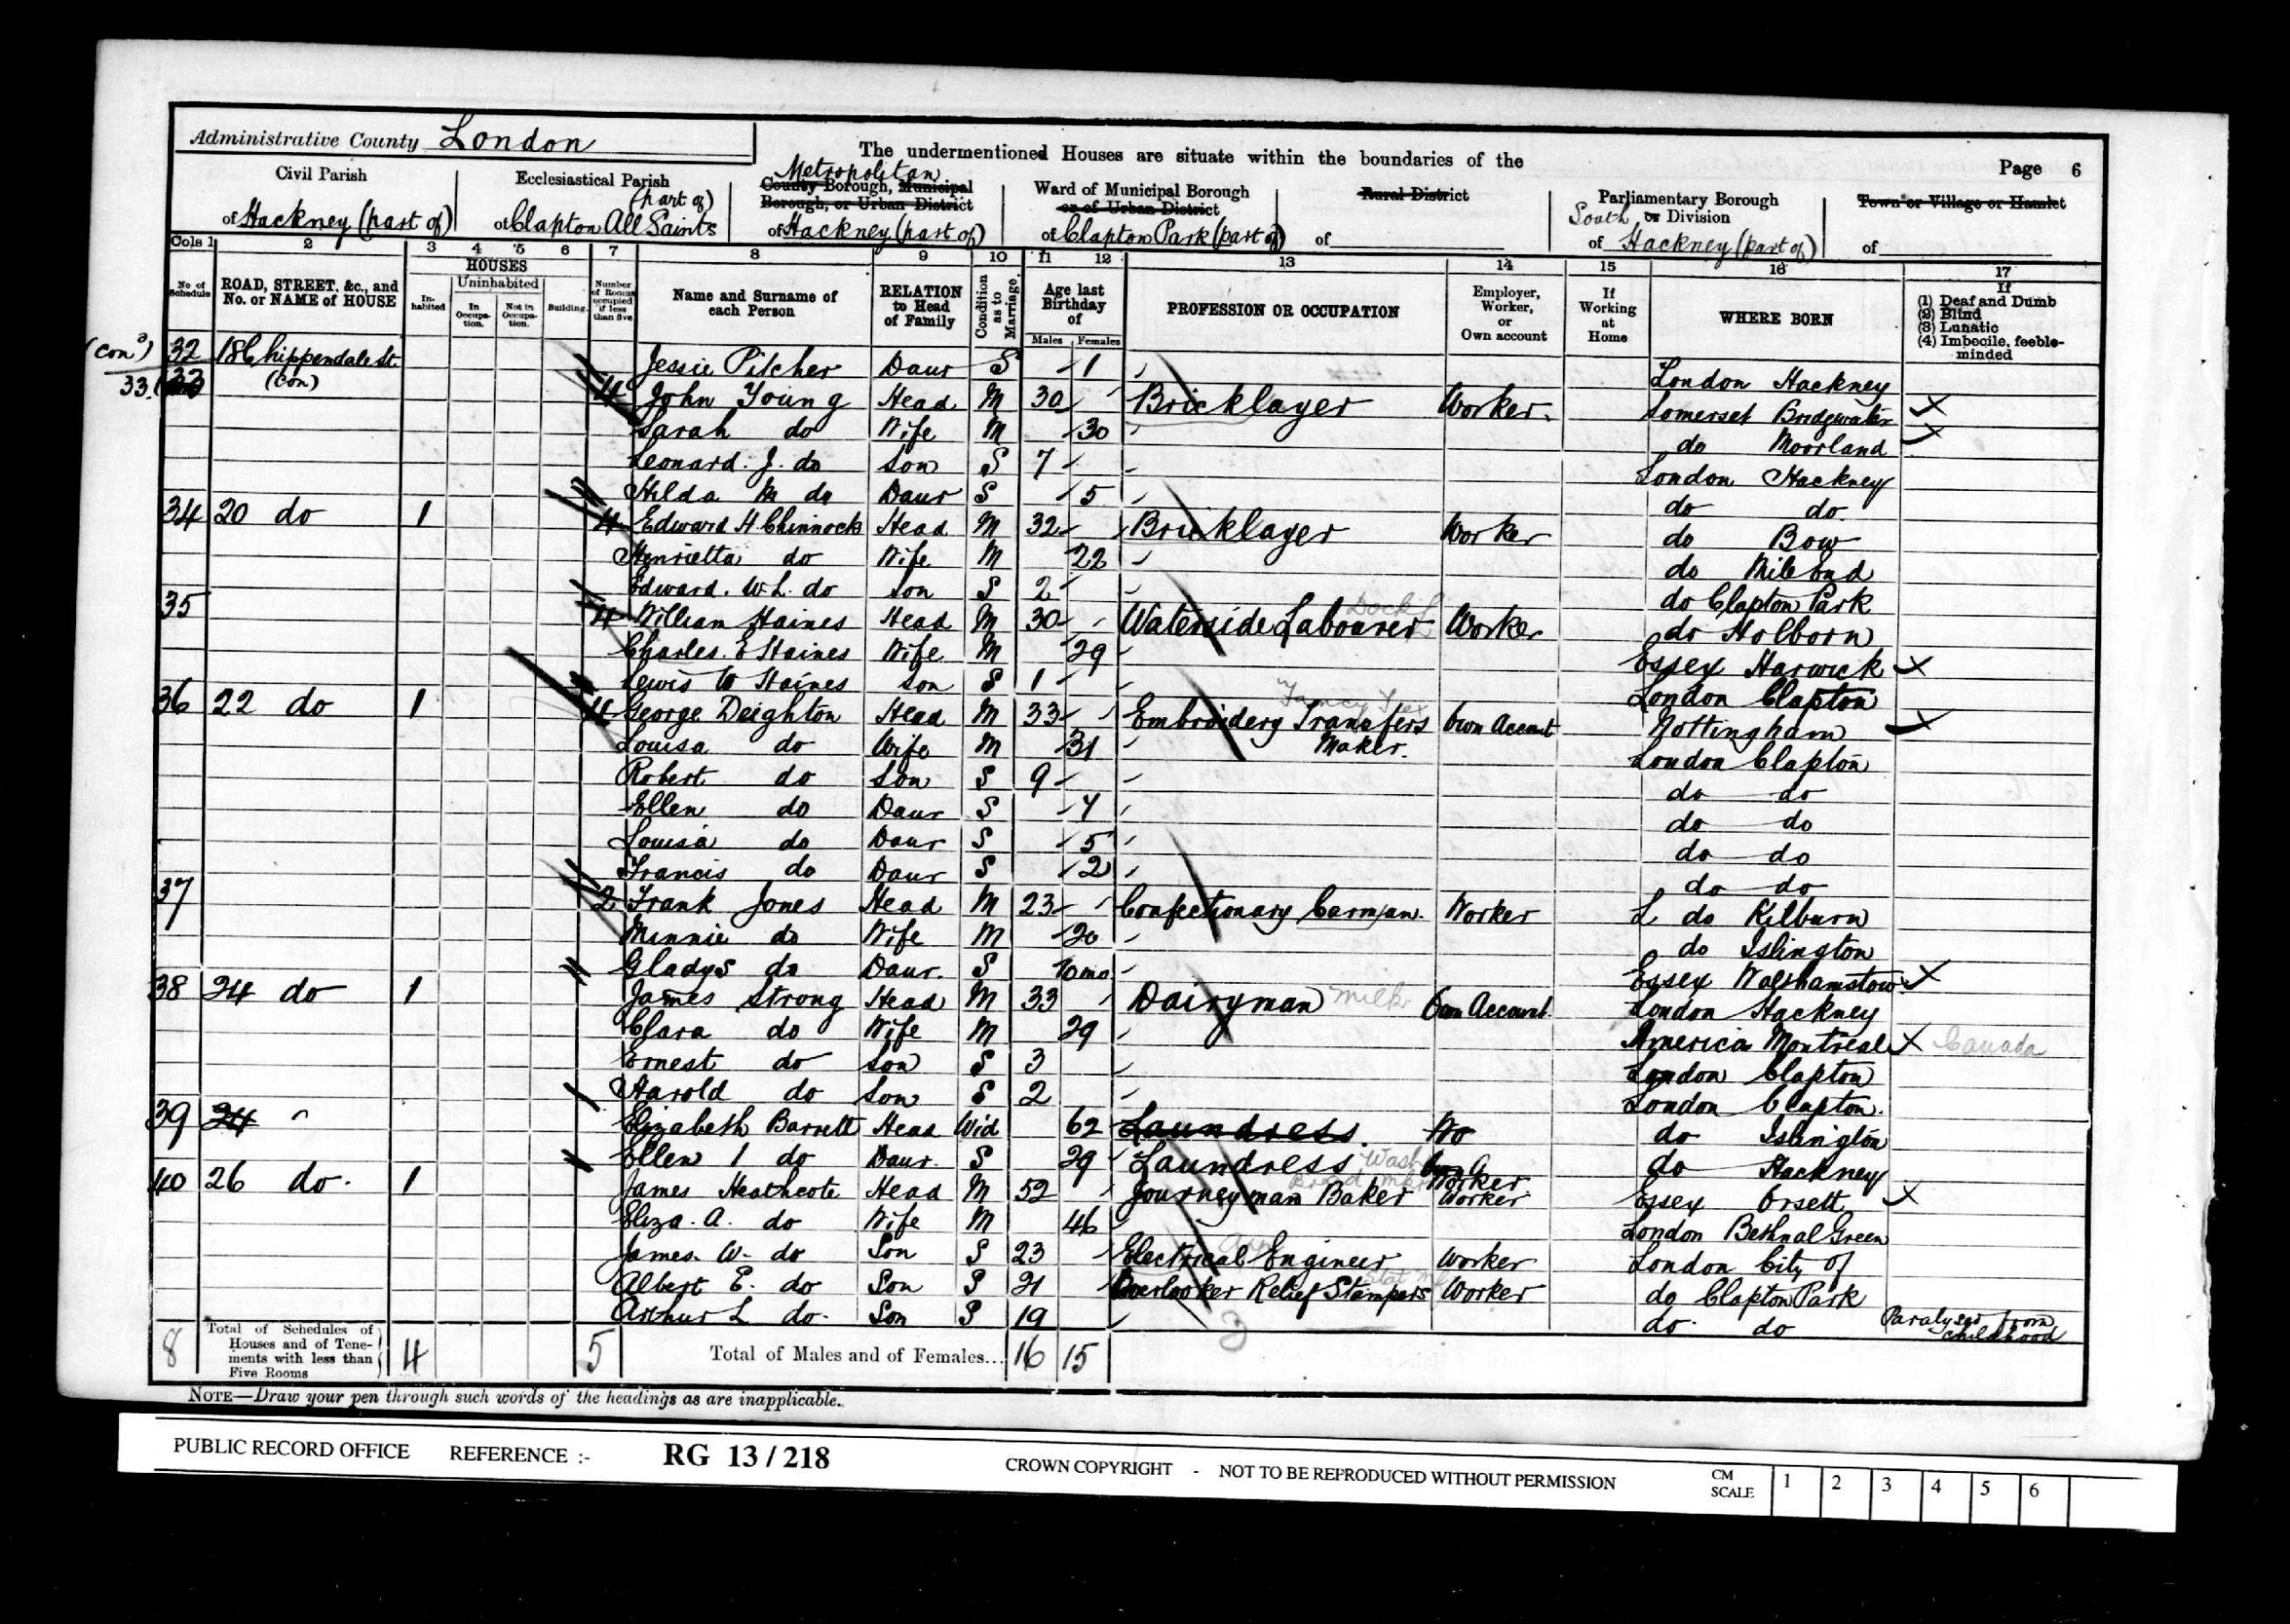 Administrative County London
The undermentioned Houses are situate within the boundaries of the
Page 6
Civil Parish
of Hackney (part of)
Ecclesiastical Parish
(part of)
of Clapton All Saints
Metropolitan
County Borough, Municipal
Borough, or Urban District
of Hackney (part of)
Ward of Municipal Borough
or of Urban District
of Clapton Park (part of)
Rural District
of
Parliamentary Borough
South or Division
of Hackney (part of)
Town or Village or Hamlet
of
Cols 1 2 3 4 5 6 7 8 9 10 11 12 13 14 15 16 17
No. of Schedule
ROAD, STREET, &c., and No. or NAME of HOUSE
HOUSES
In-habited
Uninhabited
In Occupa-tion.
Not in Occupa-tion.
Building.
Number of Rooms occupied if less than five
Name and Surname of each Person
RELATION to Head of Family
Condition as to Marriage.
Age last Birthday of
Males Females
PROFESSION OR OCCUPATION
Employer, Worker, or Own account
If Working at Home
WHERE BORN
If
(1) Deaf and Dumb
(2) Blind
(3) Lunatic
(4) Imbecile, feeble-minded
(Con) 32 18 Chippendale St. (Con) Jessie Pitcher Daur S 1 London Hackney
33 4 John Young Head M 30 Bricklayer Worker Somerset Bridgwater
Sarah do Wife M 30 do Moorland
Leonard. J. do Son S 7 London Hackney
Hilda M do Daur S 5 do do
34 20 do 1 4 Edward H. Chinnock Head M 32 Bricklayer Worker do Bow
Henrietta do Wife M 22 do Mile End
Edward. W. L. do Son S 2 do Clapton Park
35 4 William Haines Head M 30 Waterside Labourer Dock Worker do Holborn
Charles. E Haines Wife M 29 Essex Harwick
Lewis W Haines Son S 1 London Clapton
36 22 do 1 4 George Deighton Head M 33 Embroidery Transfers Maker. Own Account Nottingham
Louisa do Wife M 31 London Clapton
Robert do Son S 9 do do
Ellen do Daur S 7 do do
Louisa do Daur S 5 do do
Francis do Daur S 2 do do
37 2 Frank Jones Head M 23 Confectionary Carman. Worker L do Kilburn
Minnie do Wife M 20 do Islington
Gladys do Daur. S 10 mo Essex Walthamstow
38 24 do 1 James Strong Head M 33 Dairyman Milk Own Account London Hackney
Clara do Wife M 29 America Montreal Canada
Ernest do Son S 3 London Clapton
Harold do Son S 2 London Clapton.
39 24 Elizabeth Barrett Head Wid 62 Laundress. Wo do Islington
Ellen I do Daur. S 29 Laundress Wash Worker do Hackney
40 26 do. 1 James Heathcote Head M 52 Journeyman Baker Bread Worker Essex Orsett
Eliza. A. do Wife M 46 London Bethnal Green
James. W. do Son S 23 Electrical Engineer Worker London City of
Albert E. do Son S 21 Overlooker Relief Stampers Worker do Clapton Park
Arthur L do. Son S 19 do. do Paralysed from childhood
8 Total of Schedules of Houses and of Tene-ments with less than Five Rooms 4 5 Total of Males and of Females... 16 15
NOTE—Draw your pen through such words of the headings as are inapplicable.
PUBLIC RECORD OFFICE REFERENCE :- RG 13 / 218 CROWN COPYRIGHT - NOT TO BE REPRODUCED WITHOUT PERMISSION CM SCALE 1 2 3 4 5 6